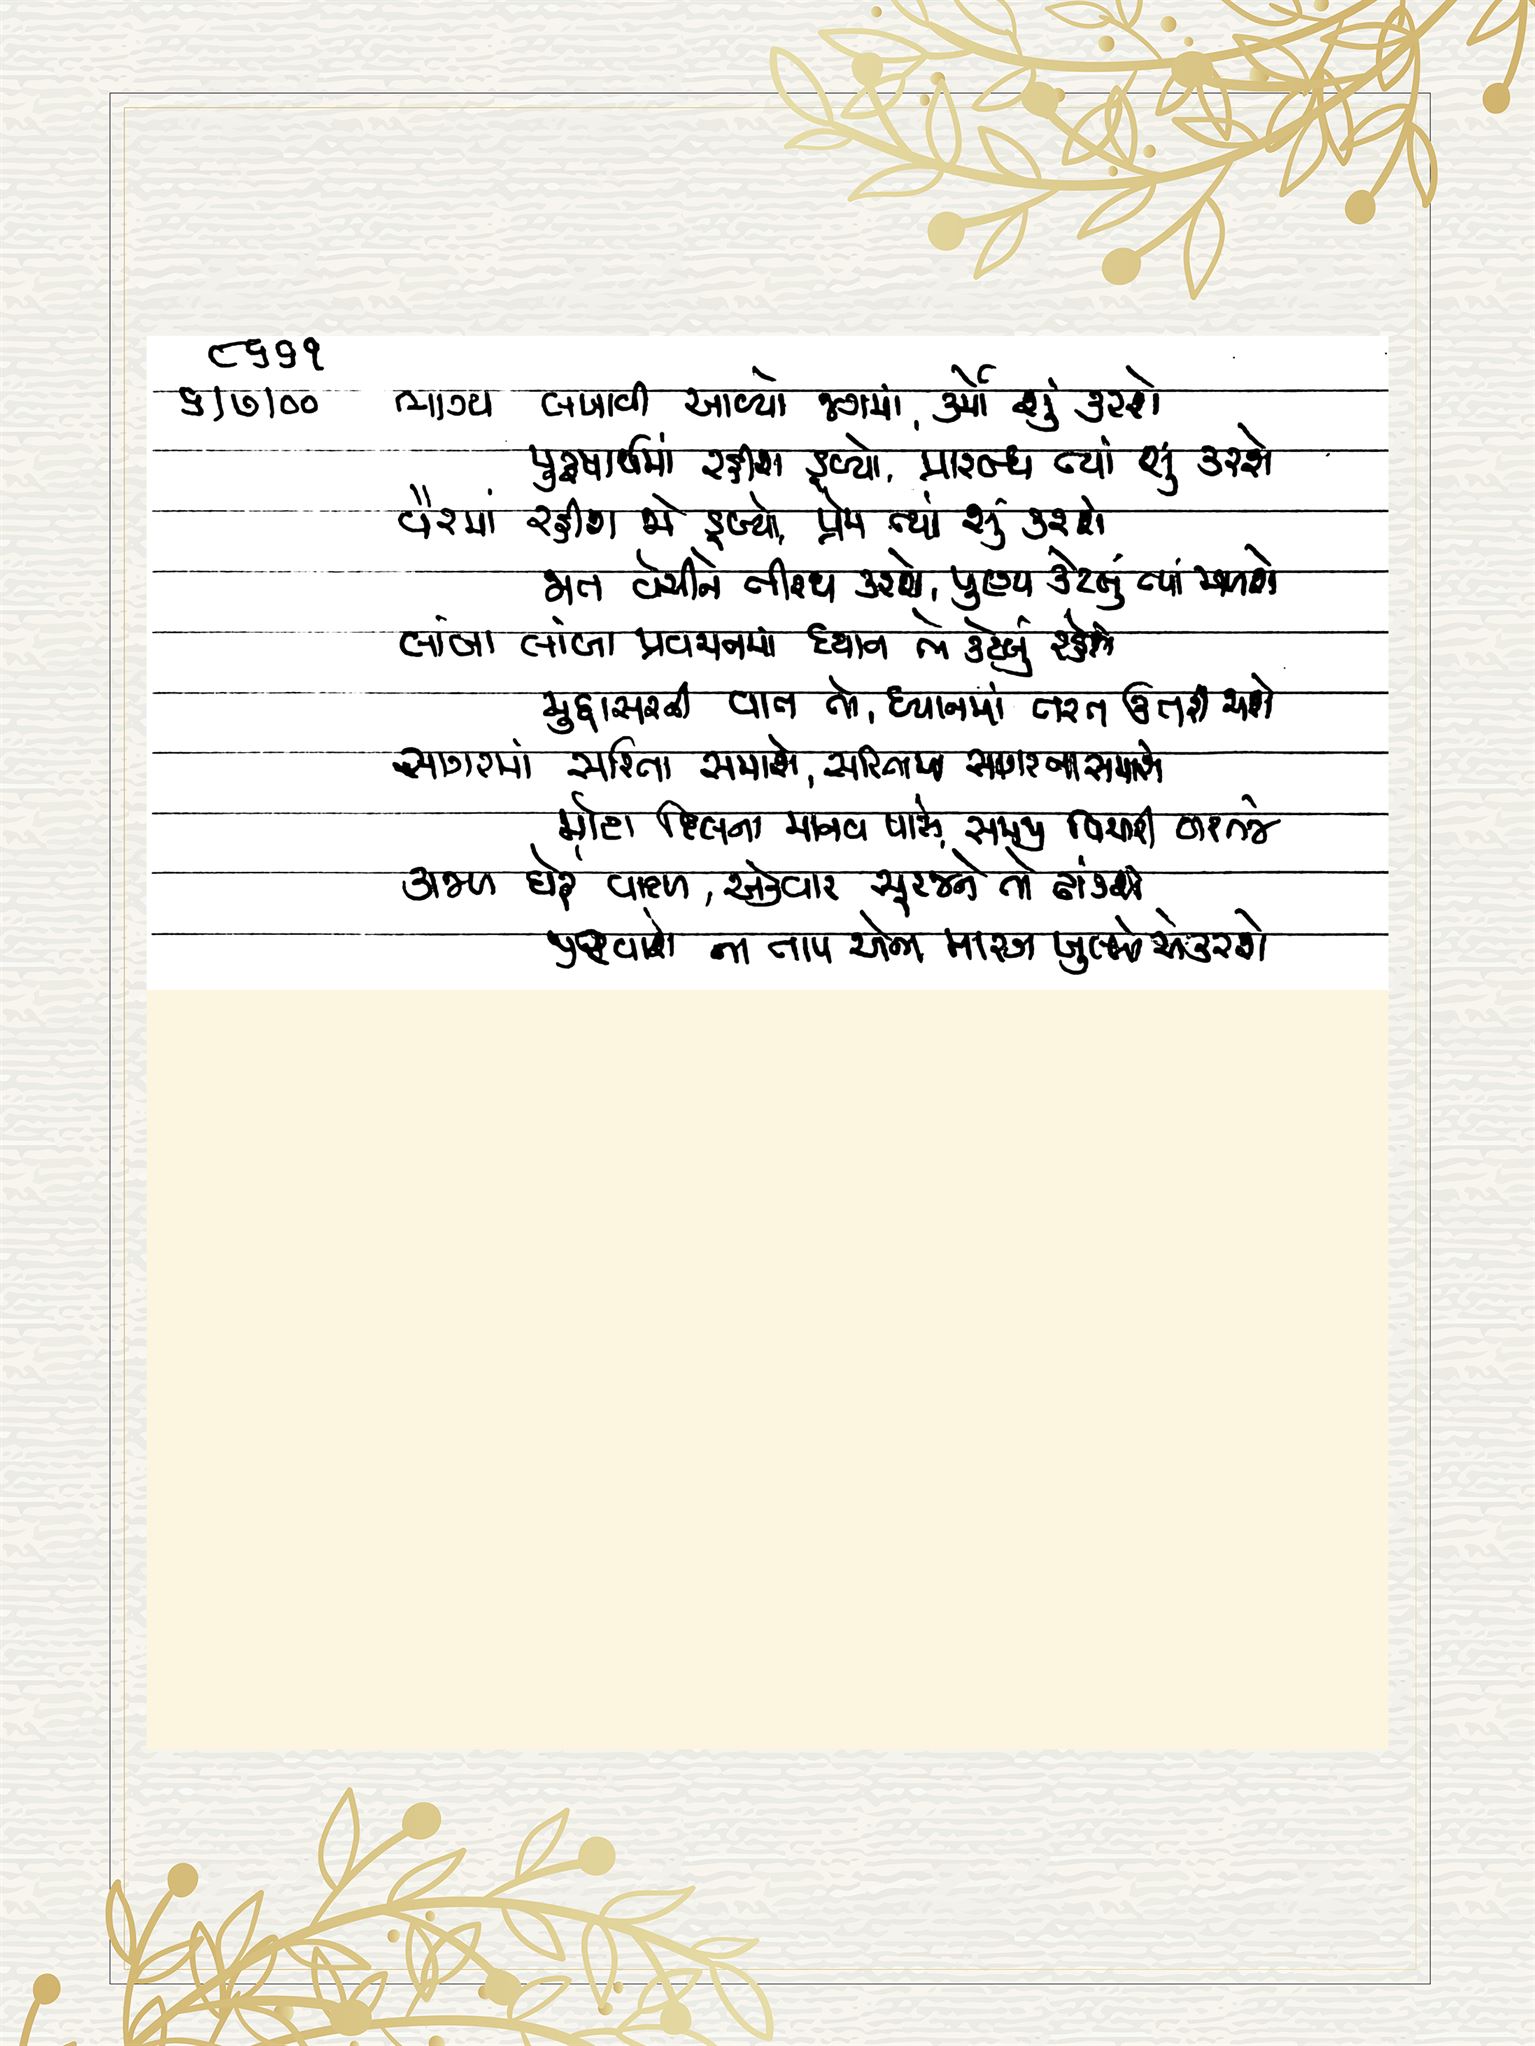 ૮૬૬૧
૬/૭/૦૦ ભાગ્ય લખાવી આવ્યો જગમાં, કર્મો શું કરશે
પુરુષાર્થમાં રહીશ ડૂબ્યો, પ્રારબ્ધ ત્યાં શું કરશે
વૈરમાં રહીશ જો ડૂબ્યો, પ્રેમ ત્યાં શું કરશે
મત વેચીને તીરથ કરશે, પુણ્ય કેટલું ત્યાં મળશે
લાંબા લાંબા પ્રવચનમાં ધ્યાન તો કેટલું રહેશે
મુદ્દાસરની વાત તો, ધ્યાનમાં તરત ઉતરી જાશે
સાગરમાં સરિતા સમાશે, સરિતામાં સાગર ના સમાશે
મોટા દિલના માનવ પાસે, સમજી વિચારી વાત તજે
અકળ ઘેરું વાદળ, એકવાર સૂરજને તો ઢાંકશે
પ્રજવાળે ના તાપ એના, માફ જુલ્મો એ કરશે